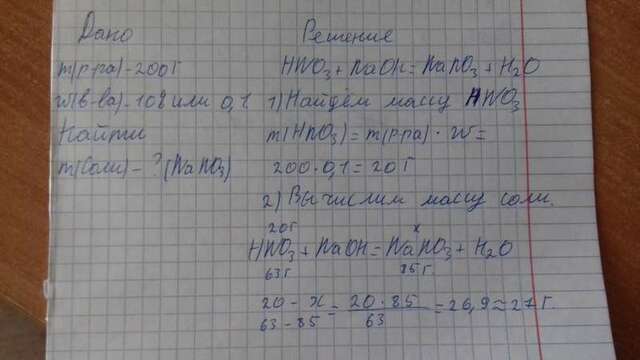 Дано
m(р-ра) - 200г
w(в-ва) - 10% или 0,1
Найти
m(соли) - ? (NaNO3)
Решение
HNO3 + NaOH = NaNO3 + H2O
1) Найдём массу HNO3
m(HNO3) = m(р-ра) · w =
200 · 0,1 = 20г
2) Вычислим массу соли.
20г x
HNO3 + NaOH = NaNO3 + H2O
63г 85г
20 - x = 20 · 85 = 26,9 ≈ 27г.
63 - 85 63